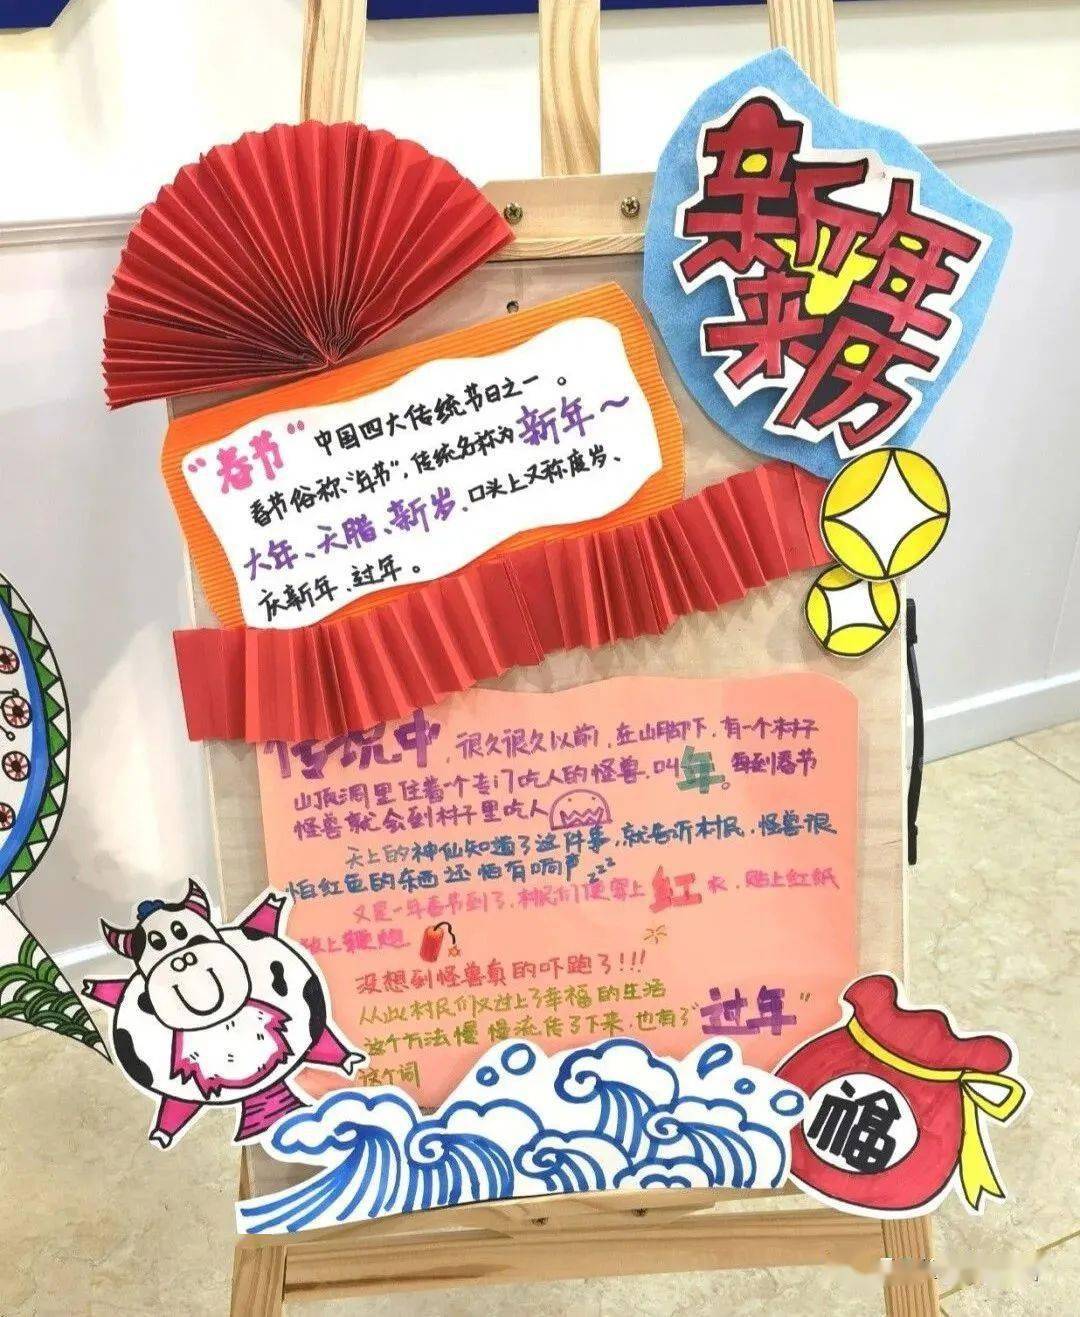 新年
来历
"春节"中国四大传统节日之一。
春节俗称"年节",传统名称为新年~
大年、天腊、新岁、口头上又称度岁、
庆新年、过年。
传说中,很久很久以前,在山脚下,有一个村子
山顶洞里住着一个专门吃人的怪兽,叫年。每到春节
怪兽就会到村子里吃人
天上的神仙知道了这件事,就告诉村民,怪兽很
怕红色的东西还怕有响声zzz
又是一年春节到了,村民们便穿上红衣,贴上红纸
放上鞭炮
没想到怪兽真的吓跑了!!!
从此村民们又过上了幸福的生活
这个方法慢慢流传了下来,也有了"过年"
这个词
福